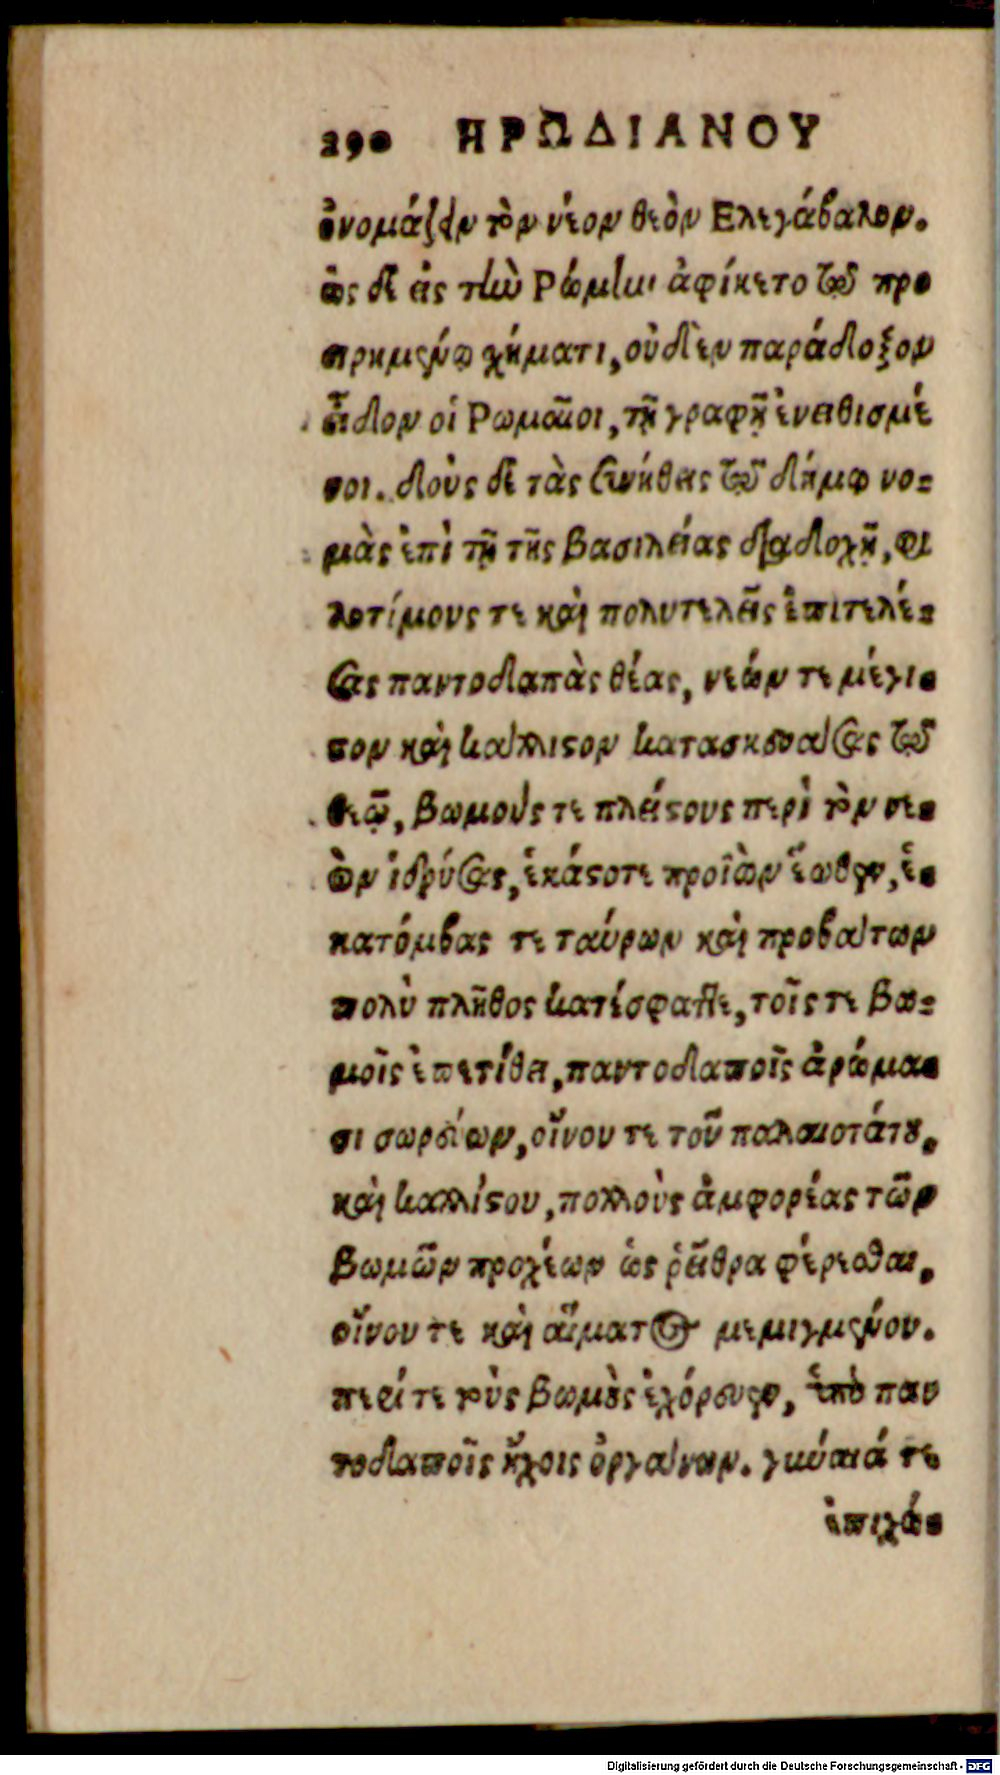 290 ΗΡΩΔΙΑΝΟΥ
ὀνομάζειν τὸν νέον θεὸν Ελεγάβαλον.
ὡς δὲ εἰς τὴν Ρώμην ἀφίκετο τῷ προ
ειρημένῳ χήματι, οὐδὲν παράδοξον
εἶδον οἱ Ρωμαῖοι, τῇ γραφῇ ἐνειθισμέ
νοι. δοὺς δὲ τὰς συνήθεις τῷ δήμῳ νο-
μὰς ἐπὶ τῇ τῆς βασιλείας διαδοχῇ, φι
λοτίμους τε καὶ πολυτελεῖς ἐπιτελέ-
σας παντοδαπὰς θέας, νεών τε μέγι-
στον καὶ κάλλιστον κατασκευάσας τῷ
θεῷ, βωμούς τε πλείστους περὶ τὸν νε-
ὼν ἱδρύσας, ἑκάστοτε προϊὼν ἕωθεν, ἑ-
κατόμβας τε ταύρων καὶ προβάτων
πολὺ πλῆθος κατέσφαττε, τοῖς τε βω-
μοῖς ἐπετίθει, παντοδαποῖς ἀρώμα-
σι σωρεύων, οἴνου τε τοῦ παλαιοτάτου,
καὶ καλλίστου, πολλοὺς ἀμφορέας τῶν
βωμῶν προχέων ὡς ῥεῖθρα φέρεσθαι,
οἴνου τε καὶ αἵματος μεμιγμένου.
περί τε τοὺς βωμοὺς ἐχόρευεν, ὑπὸ παν
τοδαποῖς ἤχοις ὀργάνων. γύναιά τε
ἐπιχώ-
Digitalisierung gefördert durch die Deutsche Forschungsgemeinschaft - DFG